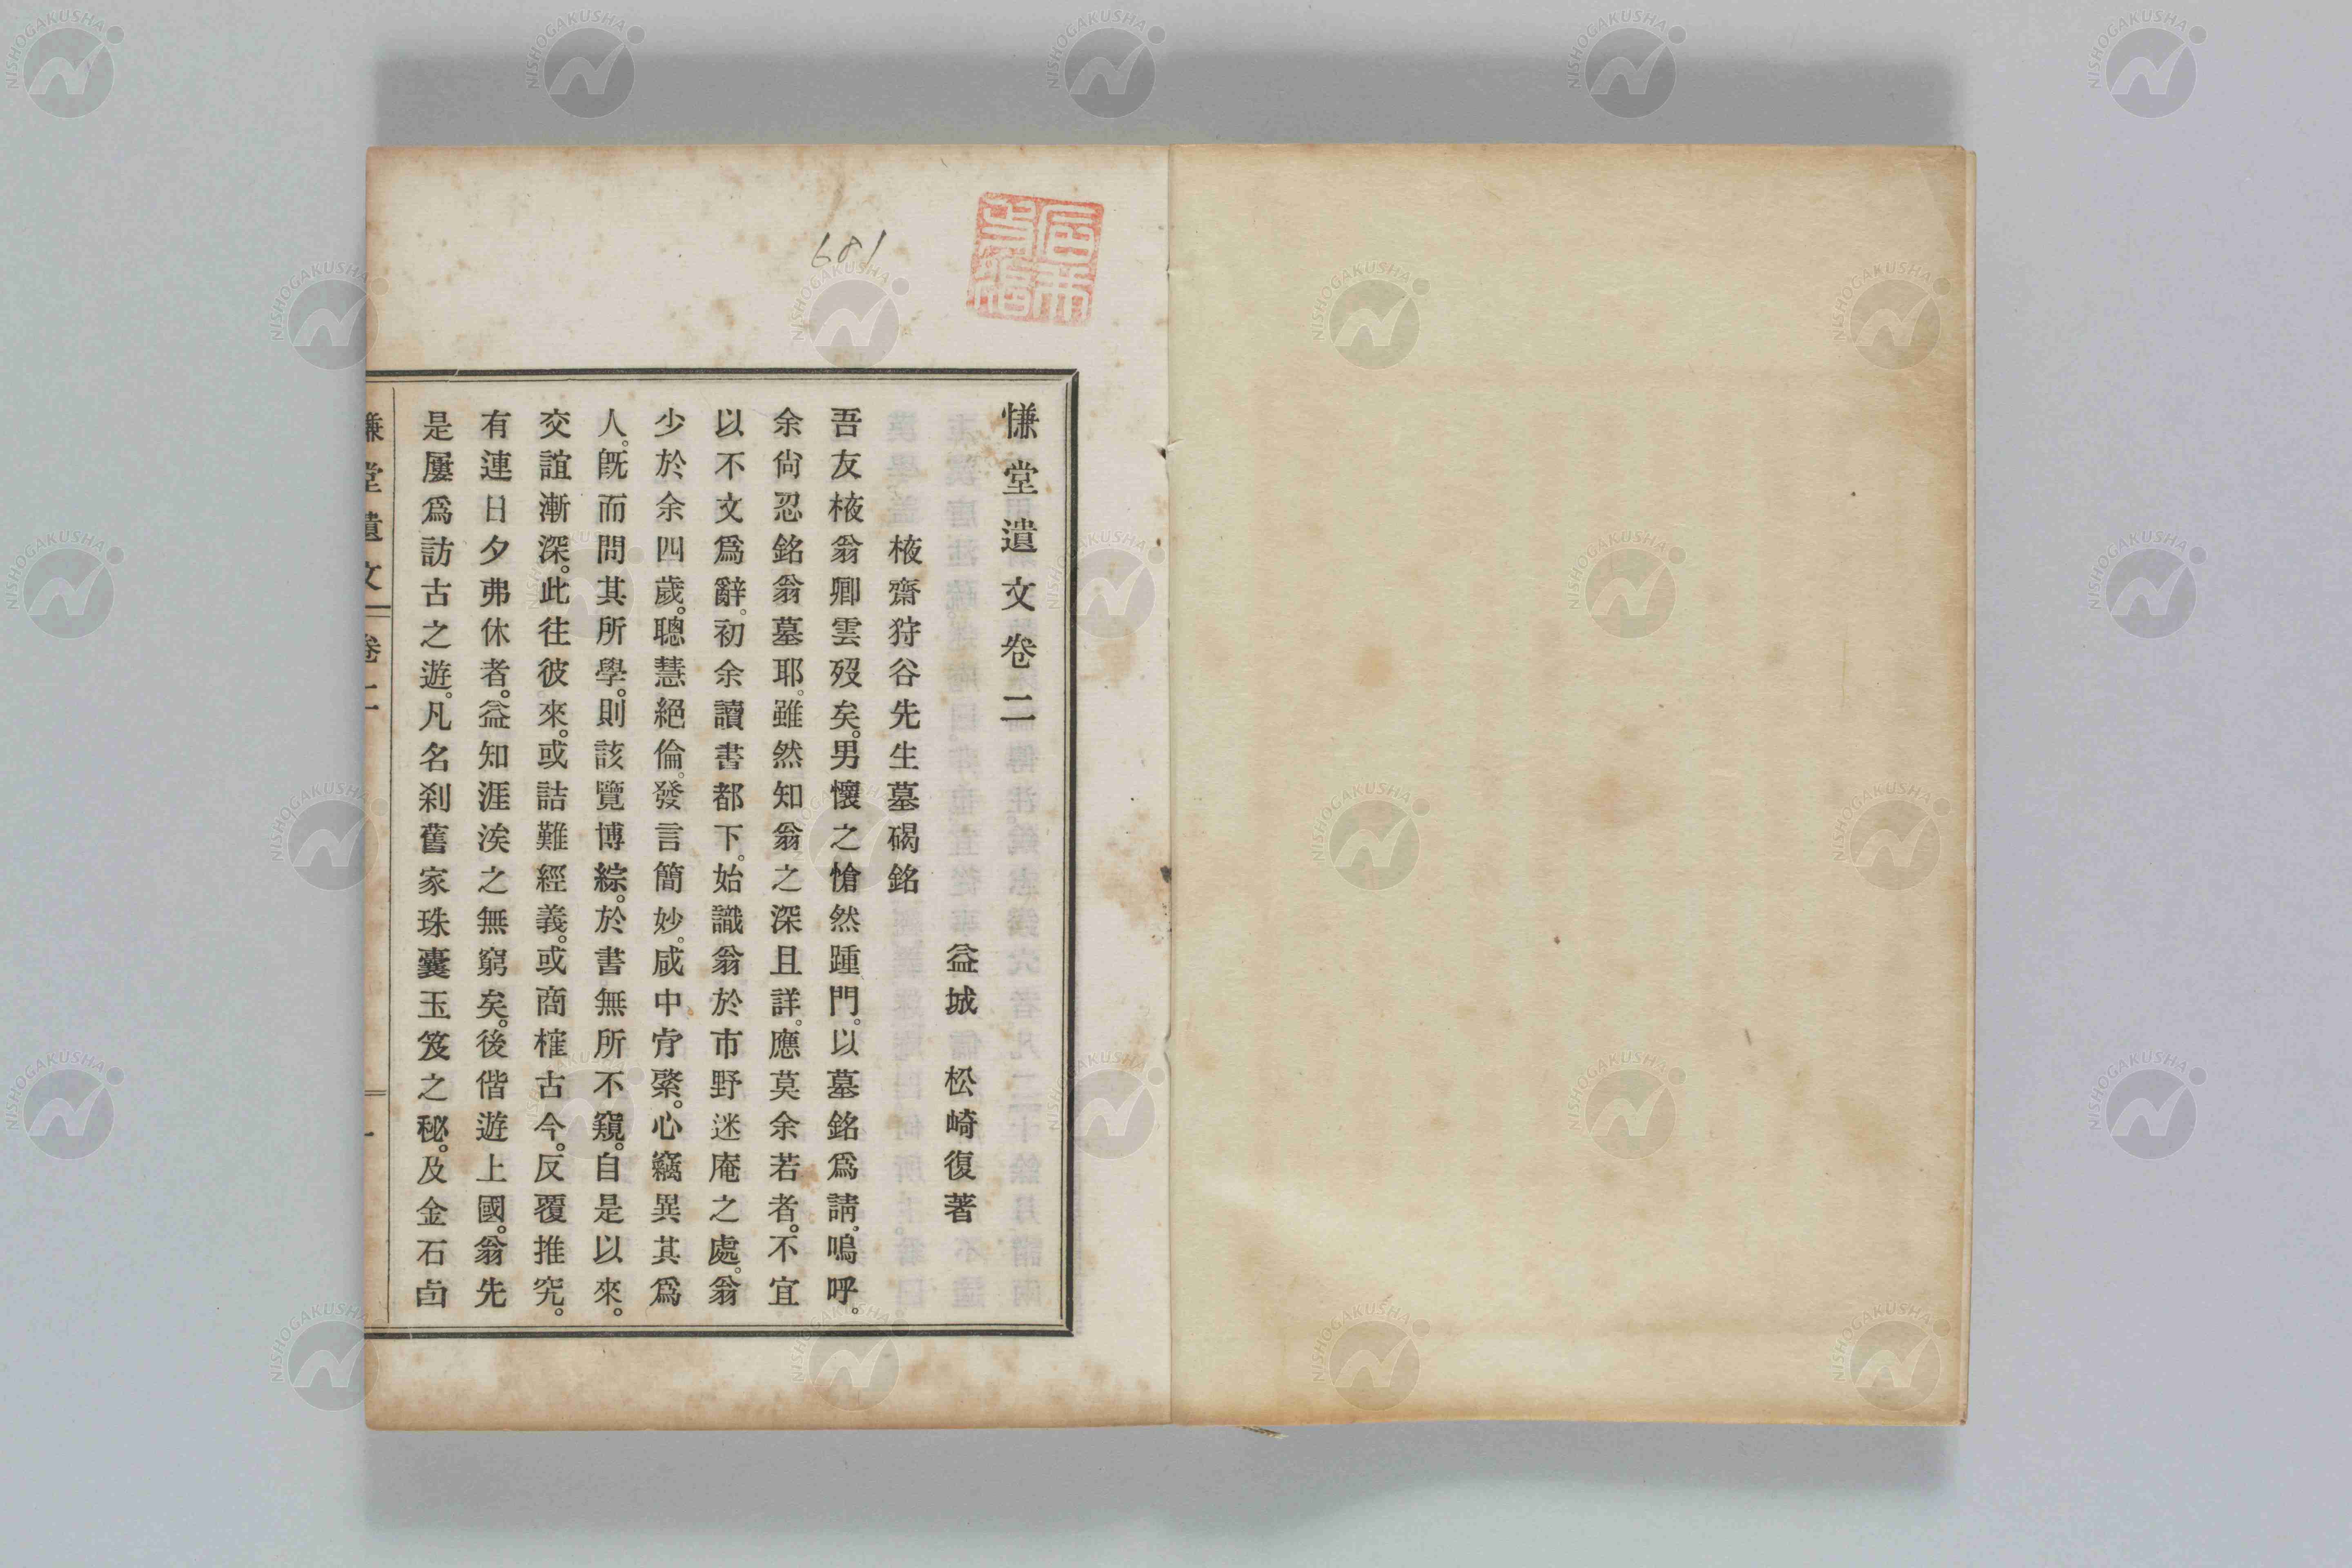 慊堂遺文卷二
益城 松崎復著
棭齋狩谷先生墓碣銘
吾友棭翁卿雲歿矣。男懷之愴然踵門。以墓銘爲請。嗚呼。
余尙忍銘翁墓耶。雖然知翁之深且詳。應莫余若者。不宜
以不文爲辭。初余讀書都下。始識翁於市野迷庵之處。翁
少於余四歲。聰慧絕倫。發言簡妙。咸中肯綮。心竊異其爲
人。旣而問其所學。則該覽博綜。於書無所不窺。自是以來。
交誼漸深。此往彼來。或詰難經義。或商榷古今。反覆推究。
有連日夕弗休者。益知涯涘之無窮矣。後偕遊上國。翁先
是屢爲訪古之遊。凡名刹舊家珠囊玉笈之秘。及金石鹵
慊堂遺文 卷二 一
681
NISHOGAKUSHA